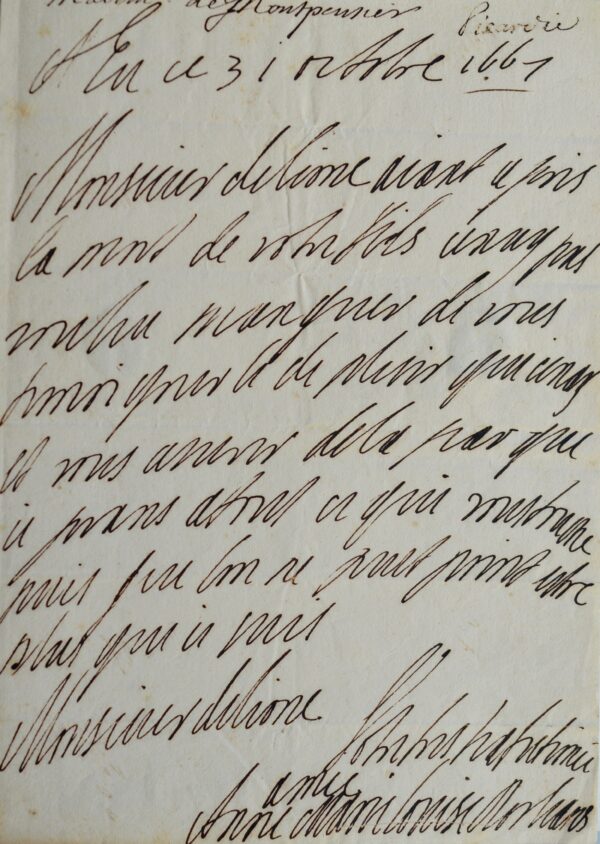 de Montpensier
Picardie
A Eu ce 31 octobre 1661
Monsieur de lione aiant apris
la mort de votre fils ie nay pas
voulu manquer de vous
temoigner le de plesir que ien ay
et vous asurer de la par que
ie prans a tout ce qui vous touche
puis que lon ne peut point estre
plus que ie suis
Monsieur de lione
Votre tres affectionnee
amie
Anne Marie Louise Dorleans